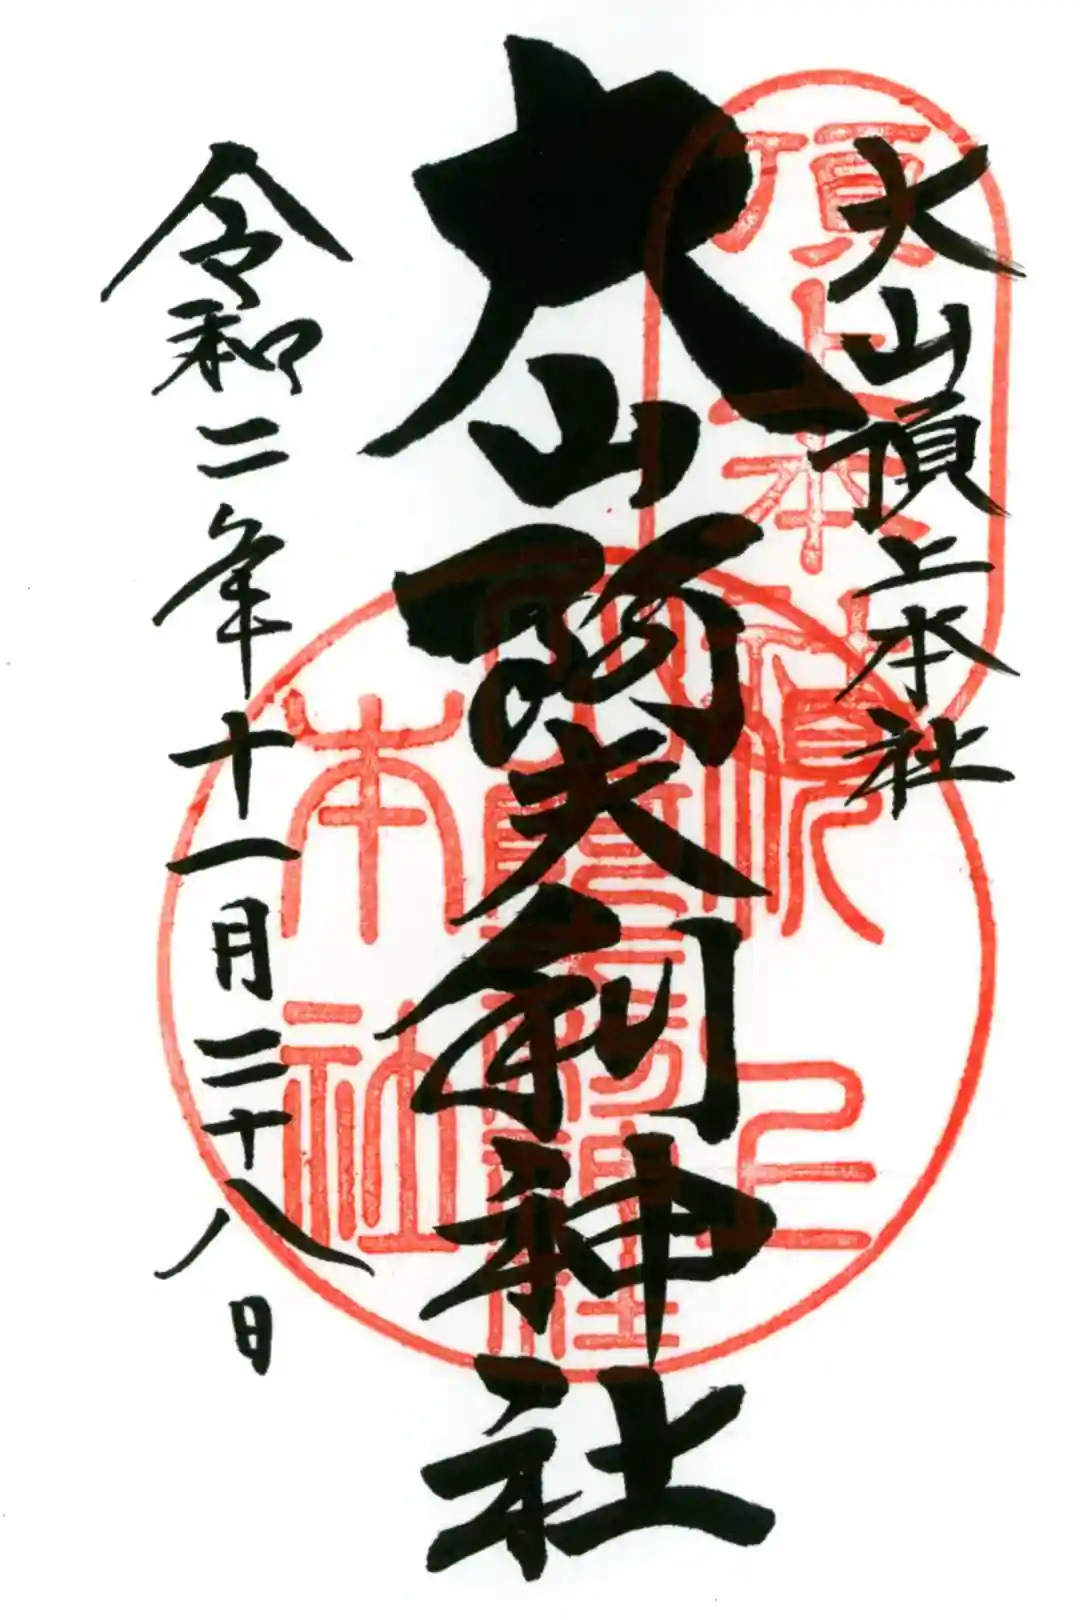 大山頂上本社
大山阿夫利神社
令和二年十一月二十八日
頂上本社
頂上
本社